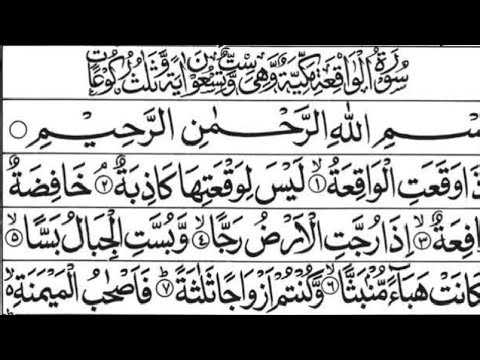 سُوْرَةُ الْوَاقِعَةِ مَكِّيَّةٌ وَّهِيَ سِتٌّ وَّتِسْعُوْنَ اٰيَةً وَّثَلٰثُ رُكُوْعَاتٍ
سْمِ اللهِ الرَّحْمٰنِ الرَّحِيْمِ ○
ذَا وَقَعَتِ الْوَاقِعَةُ ۙ﴿۱﴾ لَيْسَ لِوَقْعَتِهَا كَاذِبَةٌ ۘ﴿۲﴾ خَافِضَةٌ
افِعَةٌ ۙ﴿۳﴾ اِذَا رُجَّتِ الْاَرْضُ رَجًّا ۙ﴿۴﴾ وَّبُسَّتِ الْجِبَالُ بَسًّا ۙ﴿۵﴾
كَانَتْ هَبَآءً مُّنْۢبَثًّا ۙ﴿۶﴾ وَّكُنْتُمْ اَزْوَاجًا ثَلٰثَةً ؕ﴿۷﴾ فَاَصْحٰبُ الْمَيْمَنَةِ ۙ۬